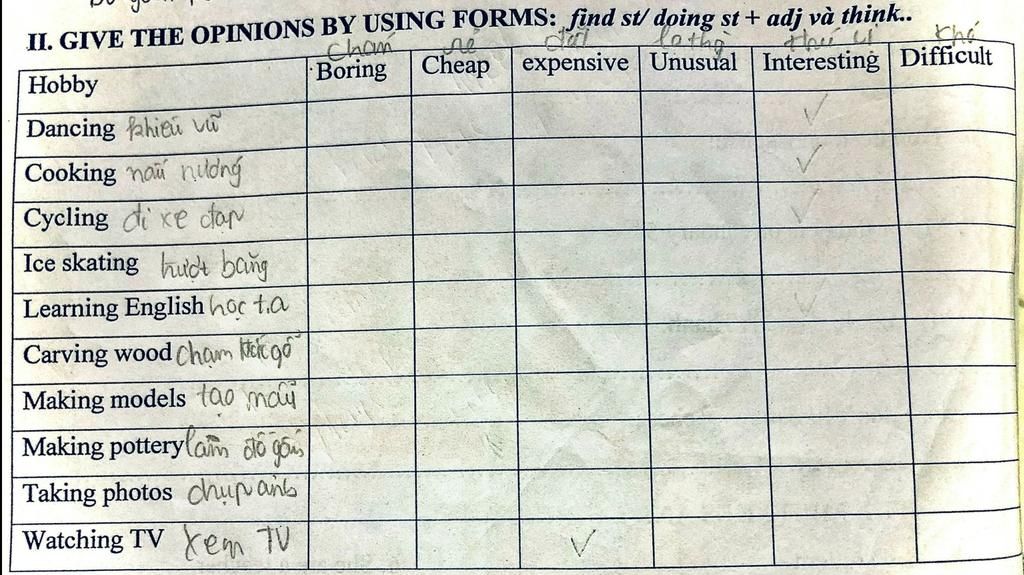 II. GIVE THE OPINIONS BY USING FORMS: find st/ doing st + adj và think..
chán rẻ đắt lạ thú vị khó
Hobby Boring Cheap expensive Unusual Interesting Difficult
Dancing khiêu vũ ✓
Cooking nấu nướng ✓
Cycling đi xe đạp ✓
Ice skating trượt băng
Learning English học t.a ✓
Carving wood chạm khắc gỗ
Making models tạo mẫu
Making pottery làm đồ gốm
Taking photos chụp ảnh
Watching TV xem TV ✓